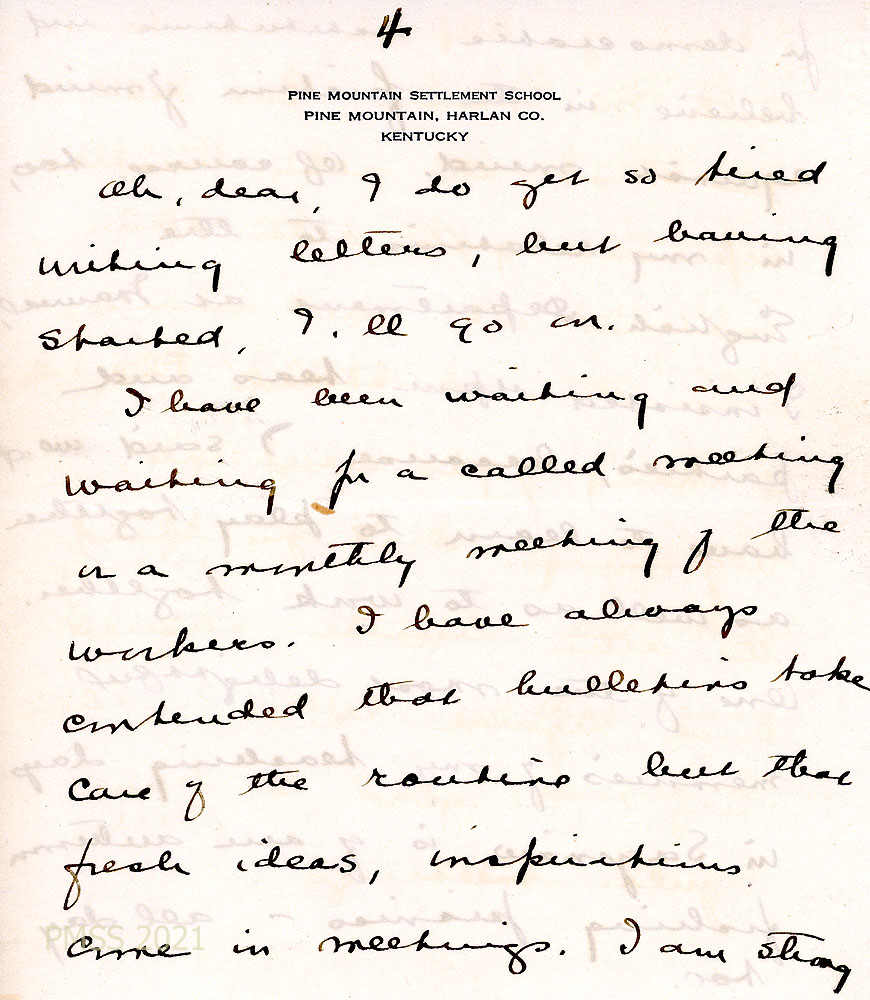 4
PINE MOUNTAIN SETTLEMENT SCHOOL
PINE MOUNTAIN, HARLAN CO.
KENTUCKY
Oh, dear, I do get so tired
writing letters, but having
started, I'll go on.
I have been waiting and
waiting for a called meeting
or a monthly meeting of the
workers. I have always
contended that bulletins take
care of the routine but that
fresh ideas, inspirations
come in meetings. I am strong
PMSS 2021